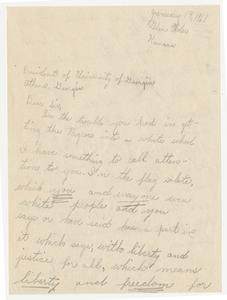 January 19, 1961
Glen Elder
Kansas
President of University of Georgia
Athens, Georgia
Dear Sir,
In the trouble you had in get-
ting the Negroes into a white school
I have something to call atten-
tions to you. In the flag salute,
which you and everyone even
white people and you
says or have said has a part in
it which says, with liberty and
justice for all, which means
liberty and freedom for